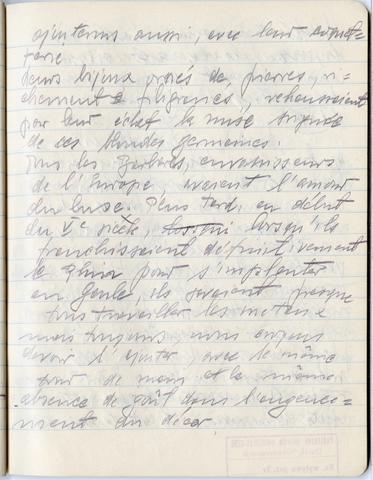 ajouterons aussi, avec leur
Leurs bijoux ornés de pierres, ri-
chement filigranés, rehaussaient
par leur éclat la
de ces blondes germaines.
Tous les Barbares, envahisseurs
de l'Europe, avaient l'amour
du luxe. Plus tard, au début
du Ve siècle, lorsqu'ils
franchissaient définitivement
le Rhin pour s'implanter
en Gaule, ils savaient presque
tous travailler les métaux
mais toujours, nous
devoir l'ajouter, avec le même
tour de main et la même
absence de goût dans l'agence-
ment du décor